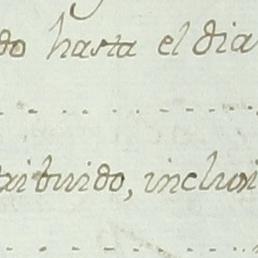 do hasta el dia
tribuido, inclusi